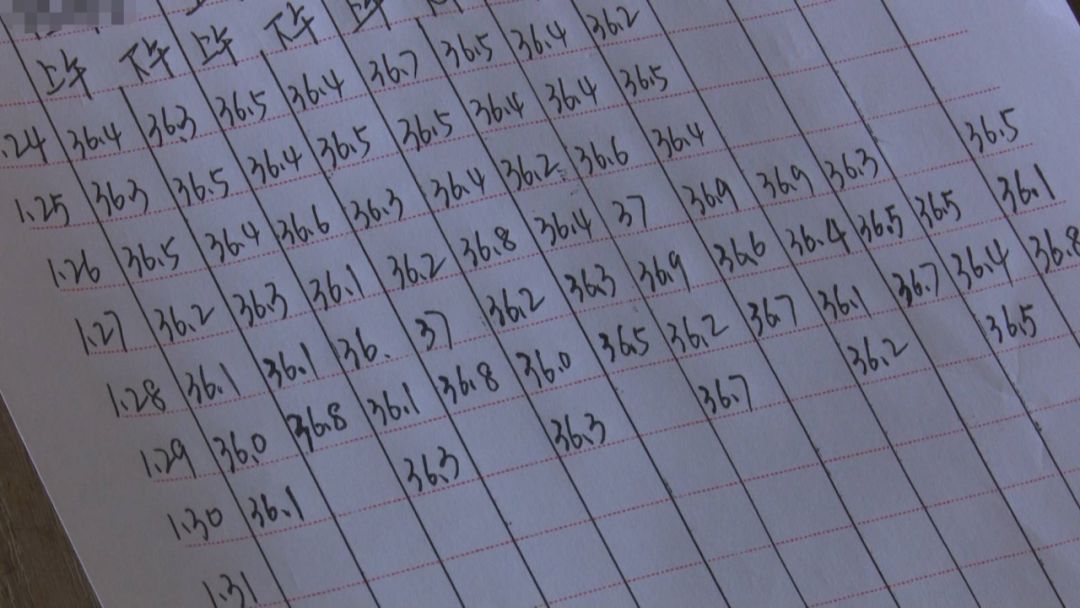 上午 下午 上午 下午
.24 36.4 36.3 36.5 36.4 36.7 36.5 36.4 36.2
1.25 36.3 36.5 36.4 36.5 36.5 36.4 36.4 36.5
1.26 36.5 36.4 36.6 36.3 36.4 36.2 36.6 36.4
1.27 36.2 36.3 36.1 36.2 36.8 36.4 37 36.9 36.9 36.3 36.5
1.28 36.1 36.1 36. 37 36.2 36.3 36.9 36.6 36.4 36.5 36.5 36.1
1.29 36.0 36.8 36.1 36.8 36.0 36.5 36.2 36.7 36.1 36.7 36.4 36.8
1.30 36.1 36.3 36.3 36.7 36.2 36.5
1.31